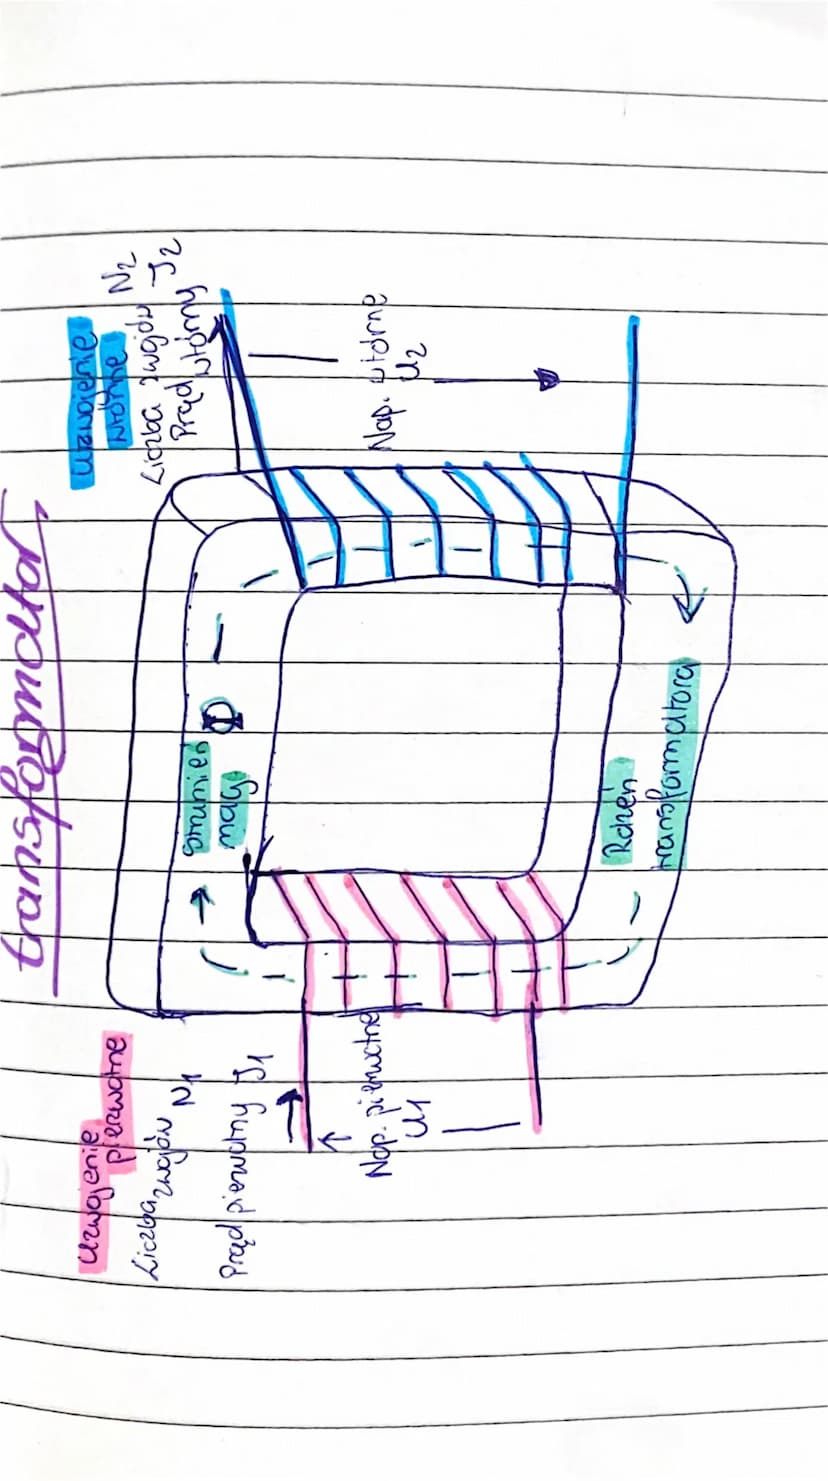 transformator
Uzwojenie
pierwotne
Liczba zwojów N1
Prąd pierwotny J1
Nap. pierwotne
U1
strumień
mag.
Φ
Rdzeń
transformatora
Uzwojenie
wtórne
Liczba zwojów N2
Prąd wtórny J2
Nap. wtórne
U2